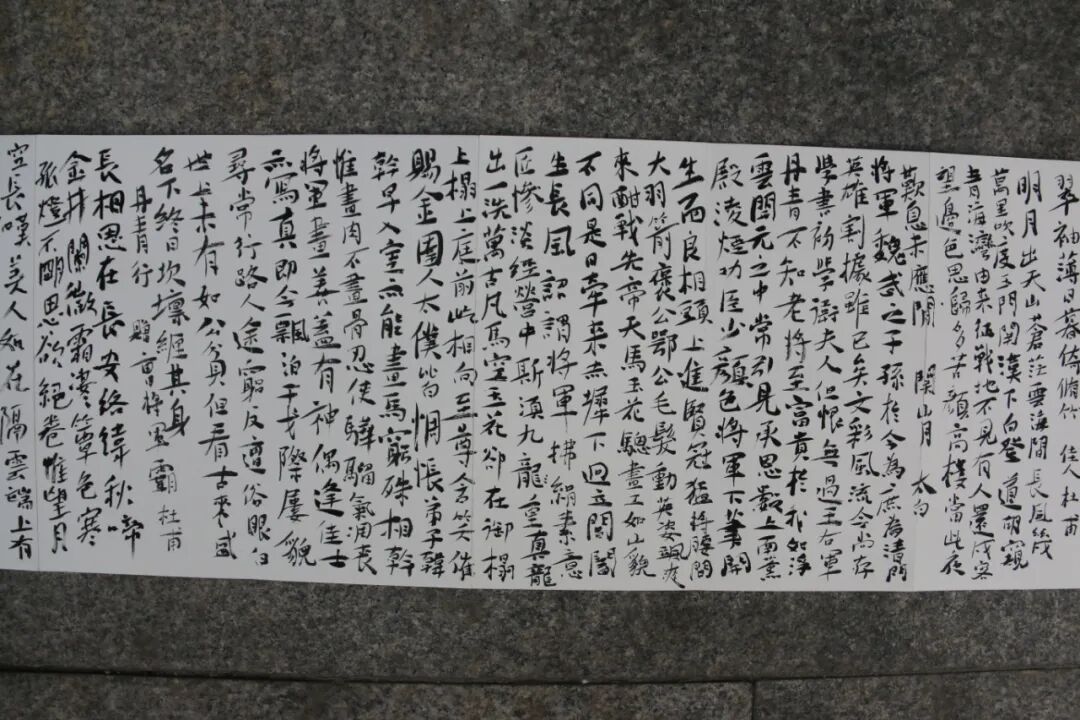 翠袖薄日暮倚脩竹 佳人杜甫
明月出天山蒼茫雲海間長風幾
萬里吹度玉門關漢下白登道胡窺
青海灣由来征戰地不見有人還戍客
望邊色思歸多苦顏高樓當此夜
歎息未應閒 關山月 太白
將軍魏武之子孫於今為庶為清門
英雄割據雖已矣文彩風流今尚存
學書初學衛夫人但恨無過王右軍
丹青不知老將至富貴於我如浮
雲開元之中常引見承恩數上南薰
殿凌煙功臣少顏色將軍下筆開
生面良相頭上進賢冠猛將腰間
大羽箭褒公鄂公毛髮動英姿颯爽
來酣戰先帝天馬玉花驄畫工如山貌
不同是日牽來赤墀下迥立閶闔
生長風詔謂將軍拂絹素意
匠慘淡經營中斯須九龍重真龍
出一洗萬古凡馬空玉花卻在御榻
上榻上庭前屹相向至尊含笑催
賜金圉人太僕皆惆悵弟子韓
幹早入室亦能畫馬窮殊相幹
惟畫肉不畫骨忍使驊騮氣凋喪
將軍畫善蓋有神偶逢佳士
亦寫真即今飄泊干戈際屢貌
尋常行路人途窮反遭俗眼白
世上未有如公貧但看古來盛
名下終日坎壈纏其身
丹青行 贈曹將軍霸 杜甫
長相思在長安絡緯秋啼
金井闌微霜淒淒簟色寒
孤燈不明思欲絕卷帷望月
空長嘆美人如花隔雲端上有